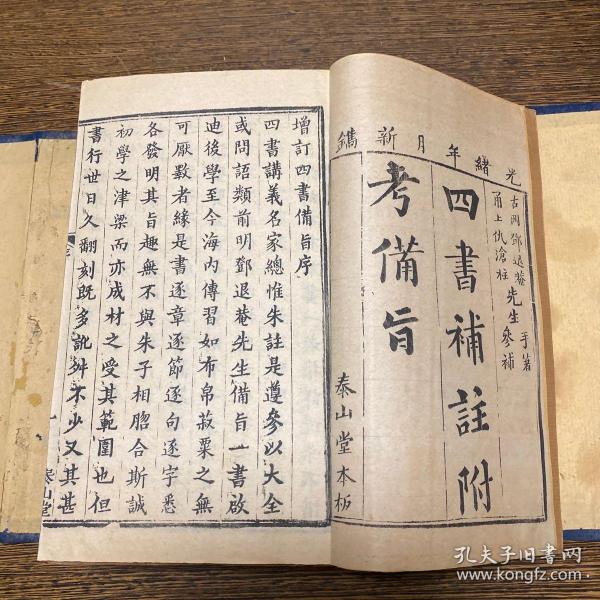 光緒 年 月 新鐫
古岡鄧退菴先生手著
甬上仇滄柱先生參補
四書補註附
考備旨
泰山堂本板
增訂四書備旨序
四書講義名家總惟朱註是遵參以大全
或問語類前明鄧退菴先生備旨一書啟
迪後學至今海內傳習如布帛菽粟之無
可厭斁者緣是書逐章逐節逐句逐字悉
各發明其旨趣無不與朱子相脗合斯誠
初學之津梁而亦成材之受其範圍也但
書行世日久翻刻既多訛舛不少又其甚
一
泰山堂
孔夫子旧书网
www.kongfz.com